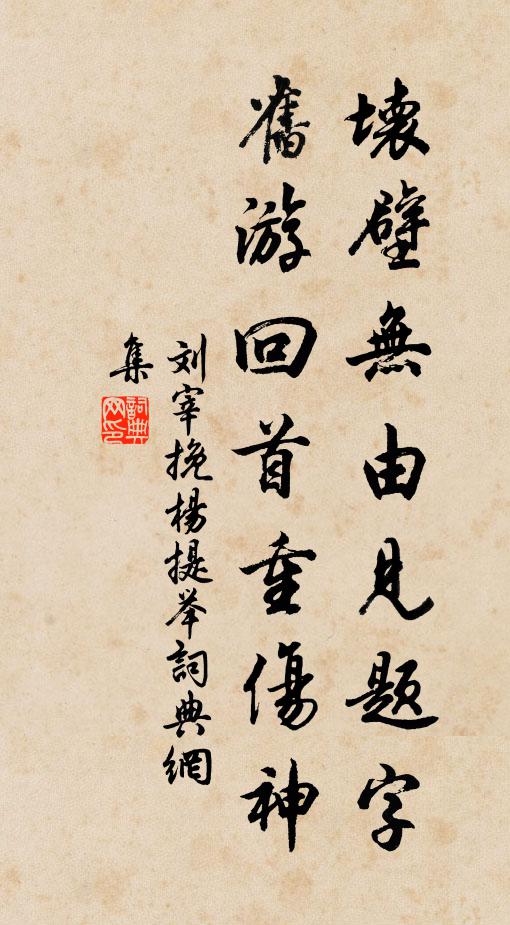 壞壁無由見题字
舊游回首重傷神
刘宰挽楊提举詞典網
集
詞典网印